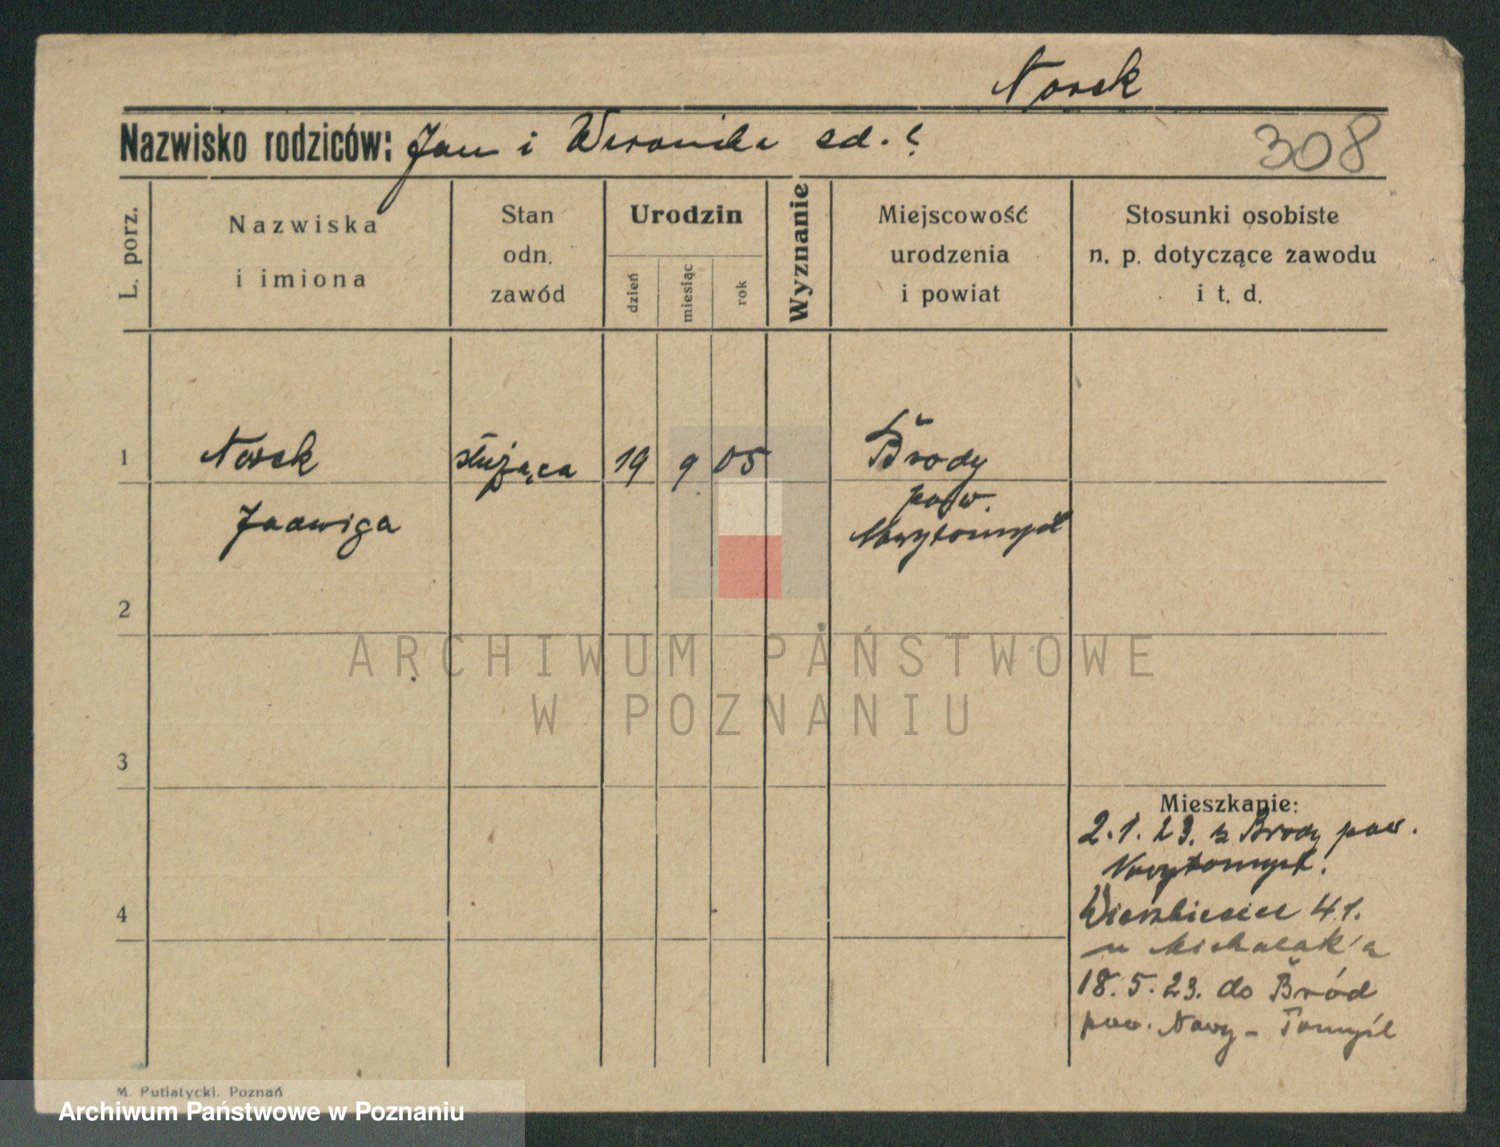 Nosek
Nazwisko rodziców: Jan i Weronika ed. ?
308
L. porz.
Nazwiska
i imiona
Stan
odn.
zawód
Urodzin
dzień
miesiąc
rok
Wyznanie
Miejscowość
urodzenia
i powiat
Stosunki osobiste
n. p. dotyczące zawodu
i t. d.
1 Nosek służąca 19 9 05 Brody
Jadwiga pow.
Nowytomyśl
2
3
4
ARCHIWUM PAŃSTWOWE
W POZNANIU
Mieszkanie:
2.1.23. z Brody pow.
Nowytomyśl.
Wierzbięcice 41.
u Michalak'a
18.5.23. do Bród
pow. Nowy-Tomyśl
M. Putiatycki. Poznań
Archiwum Państwowe w Poznaniu